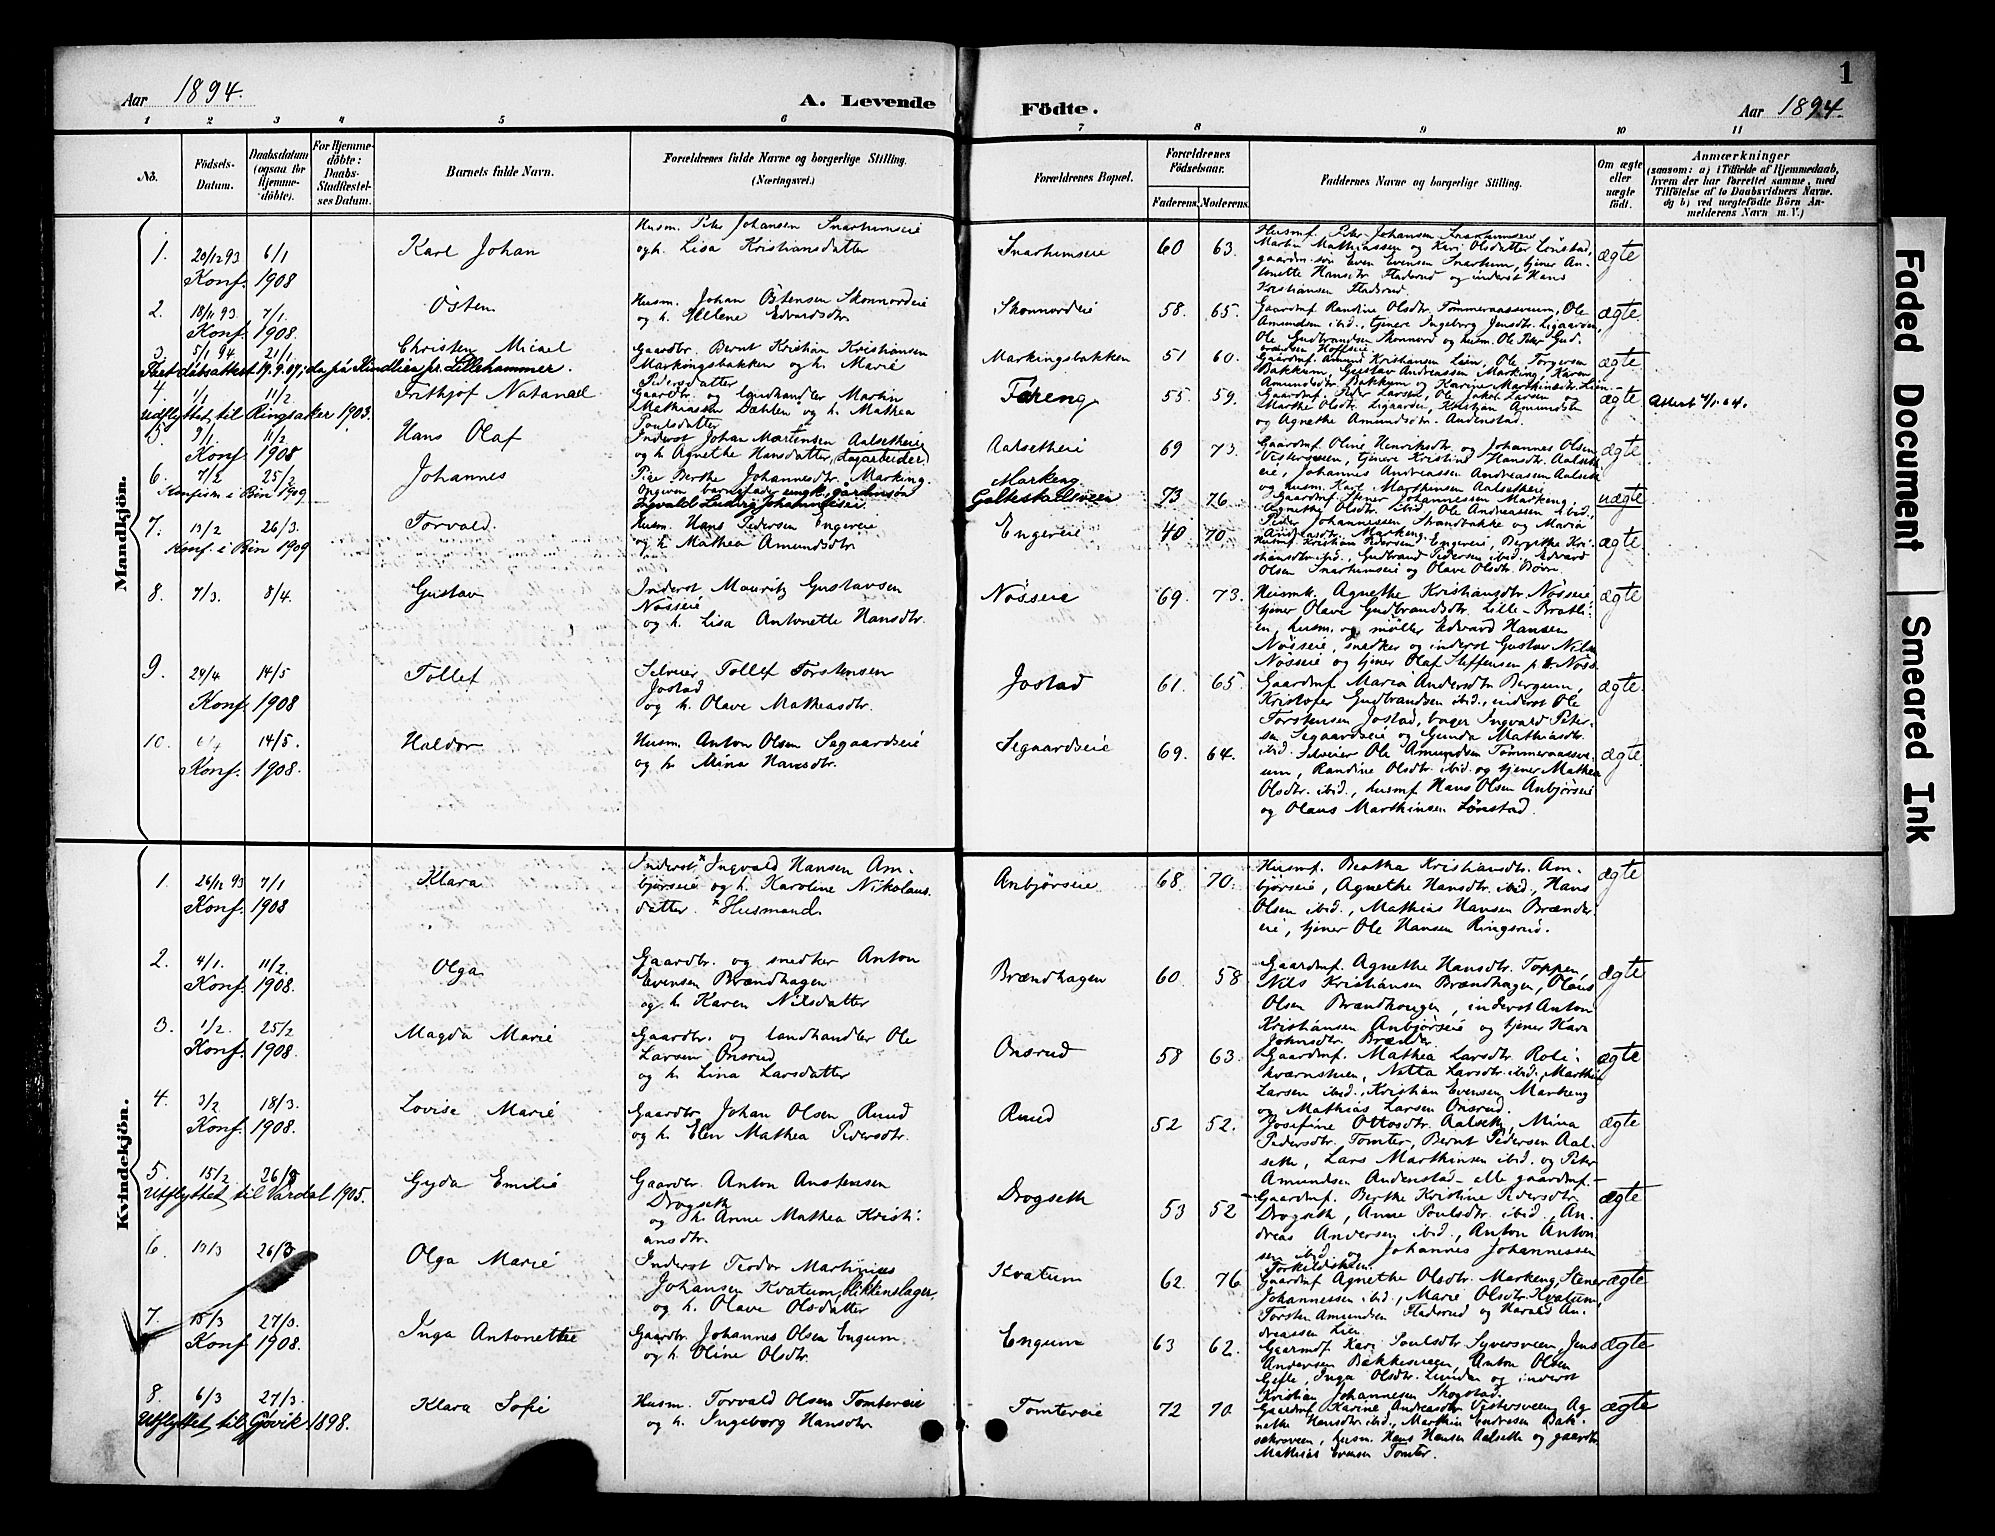 1
Aar 1894.
A. Levende
Födte.
Aar 1894.
1 2 3 4 5 6 7 8 9 10 11
No.
Födsels-
Datum.
Daabsdatum
(ogsaa for
Hjemme-
döbte).
For Hjemme-
döbte:
Daabs-
Stadfæstel-
ses Datum.
Barnets fulde Navn.
Forældrenes fulde Navne og borgerlige Stilling.
(Næringsvei.)
Forældrenes Bopæl.
Forældrenes
Födselsaar.
Faderens.
Moderens.
Faddernes Navne og borgerlige Stilling.
Om ægte
eller
uægte
födt.
Anmærkninger
(saasom: a) i Tilfælde af Hjemmedaab,
hvem der har forrettet samme, med
Tilföielse af to Daabsvidners Navne.
og b) ved uægtefödte Börn An-
melderens Navn m. V.)
Mandkjön.
1. 20/12 93 6/1 Karl Johan
Konf. 1908
Husm. Peter Johansen Snarhumseie
og h. Lisa Kristiansdatter
Snarhumseie 60 63.
Husmf. Peter Johansen Snarhumseie
Martin Mathiassen og Kari Olsdatter Lönstad,
gaardm. sön Even Evensen Snarhum, tjener An-
tonette Hansdtr. Fladsrud og inderst Hans
Kristiansen Fladsrud.
ægte
2. 18/11 93. 7/1. Östen
Konf. 1908.
Husm. Johan Östensen Skonnordeie
og h. Helene Edvardsdtr.
Skonnordeie 58. 65.
Gaardmf. Randine Olsdtr. Tömmeraasveum, Ole
Amundsen ibid., tjenere Ingeborg Jensdtr. Ligaarden,
Ole Gudbrandsen Skonnord og husm. Ole Peter Gud-
brandsen Hoffseie
ægte
3. 5/1 94 21/1. Christen Micael
Gaardbr. Bernt Kristian Kristiansen
Markingsbakken og h. Marie
Pedersdatter
Markingsbakken 51 60.
Gaardmf. Amund Kristiansen Lien, Ole Torgersen
Bakkum, Gustav Andreassen Marking, Karen
Amundsdtr. Bakkum og Karine Marthinsdtr. Lien
ægte
4. 1/1 11/2 Frithjof Natanael
Udflyttet til Ringsaker 1903.
Gaardbr. og landhandler Martin
Mathiassen Dæhlen og h. Mathea
Poulsdatter
55. 59.
Gaardmf. Peder Larsen, Ole Jakob Larsen
Marthe Olsdtr. Ligaarden, Kristian Amundsen
og Agnethe Amundsdtr. Andenstad.
ægte
5. 9/1. 11/2. Hans Olaf
Konf. 1908
Inderst Johan Martensen Aalsetheie
og h. Agnethe Hansdatter, dagarbeider.
Aalsetheie 69 73.
Gaardmf. Oline Henriksdtr. og Johannes Olsen
Vestersveen, tjenere Kristine Hansdtr. Aalseth-
eie, Johannes Andreassen Andreassen Aalseth
og husm. Karl Marthinsen Aalsetheie
ægte
6. 7/2 25/2 Johannes
Konfirm. i Biri 1909
Pige Berthe Johannesdtr. Marking.
Opgiven barnefader ungk. gårdmsøn
Ingvald Ludvig Johannessen.
Markeng 73 76
Gaardmf. Stener Johannessen Markeng,
Agnethe Olsdtr. ibid., Ole Andreassen ibid.,
Peder Johannessen Strandbakke og Maria
Andreasdtr. Markeng.
uægte
7. 13/2 26/3. Torvald.
Konf. i Biri 1909
Husm. Hans Pedersen Engereie
og h. Mathea Amundsdtr.
Engereie 40 70.
Husmf. Kristian Pedersen Engereie, Bergithe Kri-
stiansdtr. ibid., Gudbrand Pedersen ibid., Edvard
Olsen Snarhumseie og Olave Olsdtr. Börve.
ægte
8. 7/3. 8/4. Gustav
Inderst Mauritz Gustavsen
Nösseie
og h. Lisa Antonette Hansdtr.
Nösseie 69. 73.
Husmk. Agnethe Kristiansdtr. Nösseie
tjener Olave Gudbrandsdtr. Lille-Bratli-
en, husm. og möller Edvard Hansen
Nösseie, snedker og inderst Gustav Nils
Nösseie og tjener Olaf Steffensen
ægte
9. 24/4 14/5 Tollef
Konf. 1908
Selveier Tollef Torstensen
Jostad
og h. Olave Matheasdtr.
Jostad 61. 65.
Gaardmf. Maria Andersdtr. Bergum,
Kristofer Gudbrandsen ibid., inderst Ole
Torstensen Jostad, bager Ingvald Peter-
sen Segaardseie og Gunda Mathiasdtr.
ibid.
ægte
10. 14/5. Haldor
Konf. 1908.
Husm. Anton Olsen Segaardseie
og h. Mina Hansdtr.
Segaardseie 69. 64.
Selveier Ole Amundsen Tömmeraasve-
um, Randine Olsdtr. ibid. og tjener Mathea
Olsdtr. ibid., husmf. Hans Olsen Anbjörseie
og Olaus Marthinsen Lönstad.
ægte
Kvindekjön.
1. 26/12 93 7/1 Klara
Konf. 1908
Inderst* Ingvald Hansen Am-
björseie og h. Karoline Nikolaus-
datter. *Husmand.
Anbjörseie 68. 70.
Husmf. Beatha Kristiansdtr. Am-
björseie, Agnethe Hansdtr. ibid., Hans
Olsen ibid., Mathias Hansen Brænder-
eie, tjener Ole Hansen Ringsrud.
ægte
2. 4/1. 11/2. Olga
Konf. 1908.
Gaardbr. og snedker Anton
Evensen Brændhagen
og h. Karen Nilsdatter
Brændhagen 60. 58
Gaardmf. Agnethe Hansdtr. Toppen,
Nils Kristiansen Brændhagen, Olaus
Olsen Brændhaugen, inderst Anton
Kristiansen Anbjörseie og tjener Kari
Johnsdtr. Brænder.
ægte
3. 1/2. 25/2 Magda Marie
Konf. 1908.
Gaardbr. og landhandler Ole
Larsen Onsrud
og h. Lina Larsdatter
Onsrud 58 63.
Gaardmf. Mathea Larsdtr. Roli-
kværnstuen, Netta Larsdtr. ibid., Marthin
Larsen ibid., Kristian Evensen Markeng
og Mathias Larsen Onsrud.
ægte
4. 3/2 18/3. Lovise Marie
Konf. 1908.
Gaardbr. Johan Olsen Ruud
og h. Elen Mathea Pedersdtr.
Ruud 52 52.
Josefine Ottosdtr. Aalseth, Mina
Pedersdtr. Tomter, Bernt Pedersen Aal-
seth, Lars Marthinsen ibid. og Peter
Amundsen Andenstad - alle gaardmf.
ægte
5. 15/2 26/3 Gyda Emilie
Utflyttet til Vardal 1905.
Gaardbr. Anton Anstensen
Drogseth
og h. Anne Mathea Kristi-
ansdtr.
Drogseth 53 52
Gaardmf. Berthe Kristine Pedersdtr.
Drogseth, Anne Poulsdtr. ibid., An-
dreas Andersen ibid., Anton Anton-
sen ibid. og Johannes Johannessen
ægte
6. 13/3 26/3 Olga Marie
Inderst Teodor Martinius
Johansen Kvatum, blikkenslager,
og h. Olave Olsdatter
Kvatum 62. 76
Gaardmf. Agnethe Olsdtr. Markeng, Stener
Johannessen ibid., Marie Olsdtr. Kvatum,
Torsten Amundsen Fladsrud og Harald An-
dreassen Lien
ægte
7. 15/3 27/3. Inga Antonette
Konf 1908.
Gaardbr. Johannes Olsen Engum.
og h. Oline Olsdtr.
Engum 63 62.
Gaardmf. Kari Poulsdtr. Syversveen, Jens
Andersen Bakkesveen, Anton Olsen
Inga Olsdtr. Lunden og inderst
Kristian Johannesen Skogstad.
ægte
8. 6/3 27/3. Klara Sofie
Utflyttet til Gjøvik 1898.
Husm. Torvald Olsen Tomtereie
og h. Ingeborg Hansdtr.
Tomtereie 72 70.
Gaardmf. Karine Andreasdtr. Vestersveen, Ag-
nethe Hansdtr. ibid., Marthin Endresen Bak-
kesveen, husm. Hans Hansen Aalseth og gaardbr.
Mathias Evensen Tomter.
ægte
Faded Document
Smeared Ink